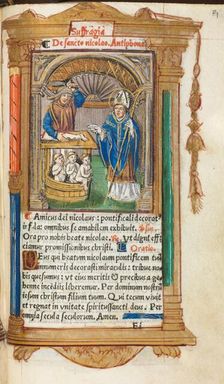 Suffragia
De sancto nicolao. Antiphona
Amicus dei nicolaus: pontificali decorat⁹
infula: omnibus se amabilem exhibuit.
Ora pro nobis beate nicolae. Ut digni effi
ciamur promissionibus christi. Oratio.
Deus qui beatum nicolaum pontificem tuū
innumeris decorasti miraculis: tribue
bis quesumus: ut eius meritis & precibus a ge
henne incēdiis liberemur. Per dominum nostrū
iesum christum filium tuum. Qui tecum vivit
et regnat in unitate spiritussancti deus. Per
omnia secula seculorum. Amen.